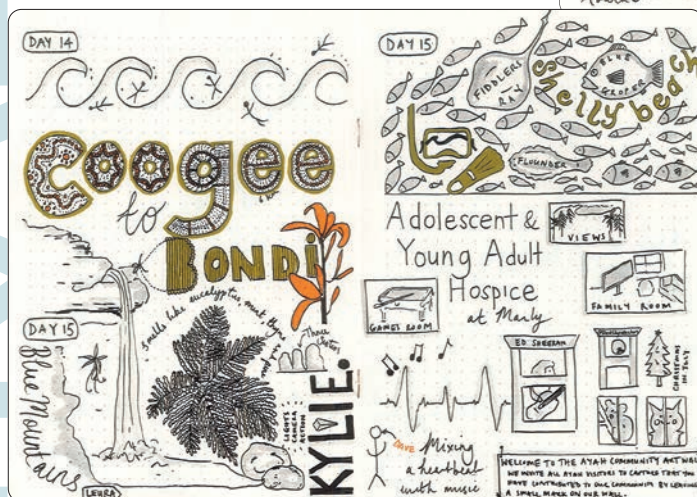 DAY 14
coogee
to
BONDI
DAY 15
Blue Mountains
Smells like eucalyptus mint, thyme
Three
LIGHTS
CAMERA
ACTION
KYLIE.
LEURA
DAY 15
FIDDLER
RAY
BLUE
GROPER
Shelly beach
FLOUNDER
Adolescent &
Young Adult
Hospice
at Manly
VIEWS
GAMES ROOM
FAMILY ROOM
ED SHEERAN
CHRISTMAS
IN JULY
DAVE Mixing
a heartbeat
with music
WELCOME TO THE AYAH COMMUNITY ART WALL
WE INVITE ALL AYAH VISITORS TO CAPTURE THAT YOU
HAVE CONTRIBUTED TO OUR COMMUNITY BY LEAVING
A SMALL MARK ON OUR WALL.